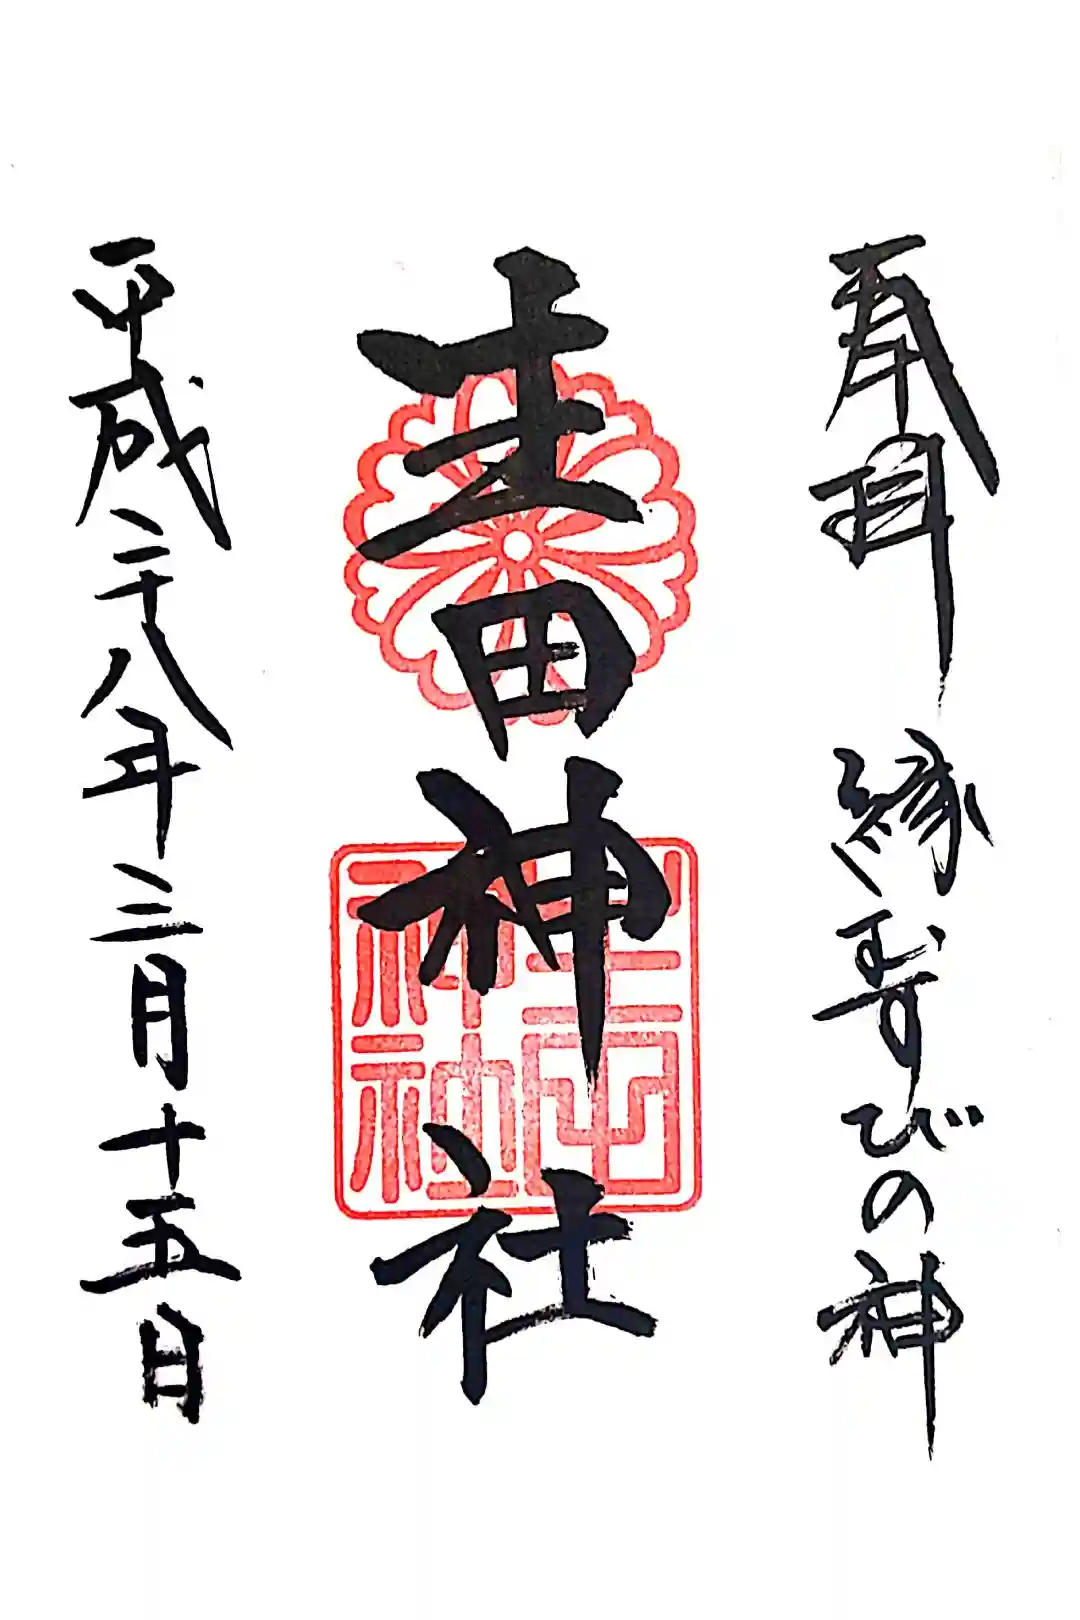 奉拝 縁むすびの神
生田神社
平成二十八年三月十五日